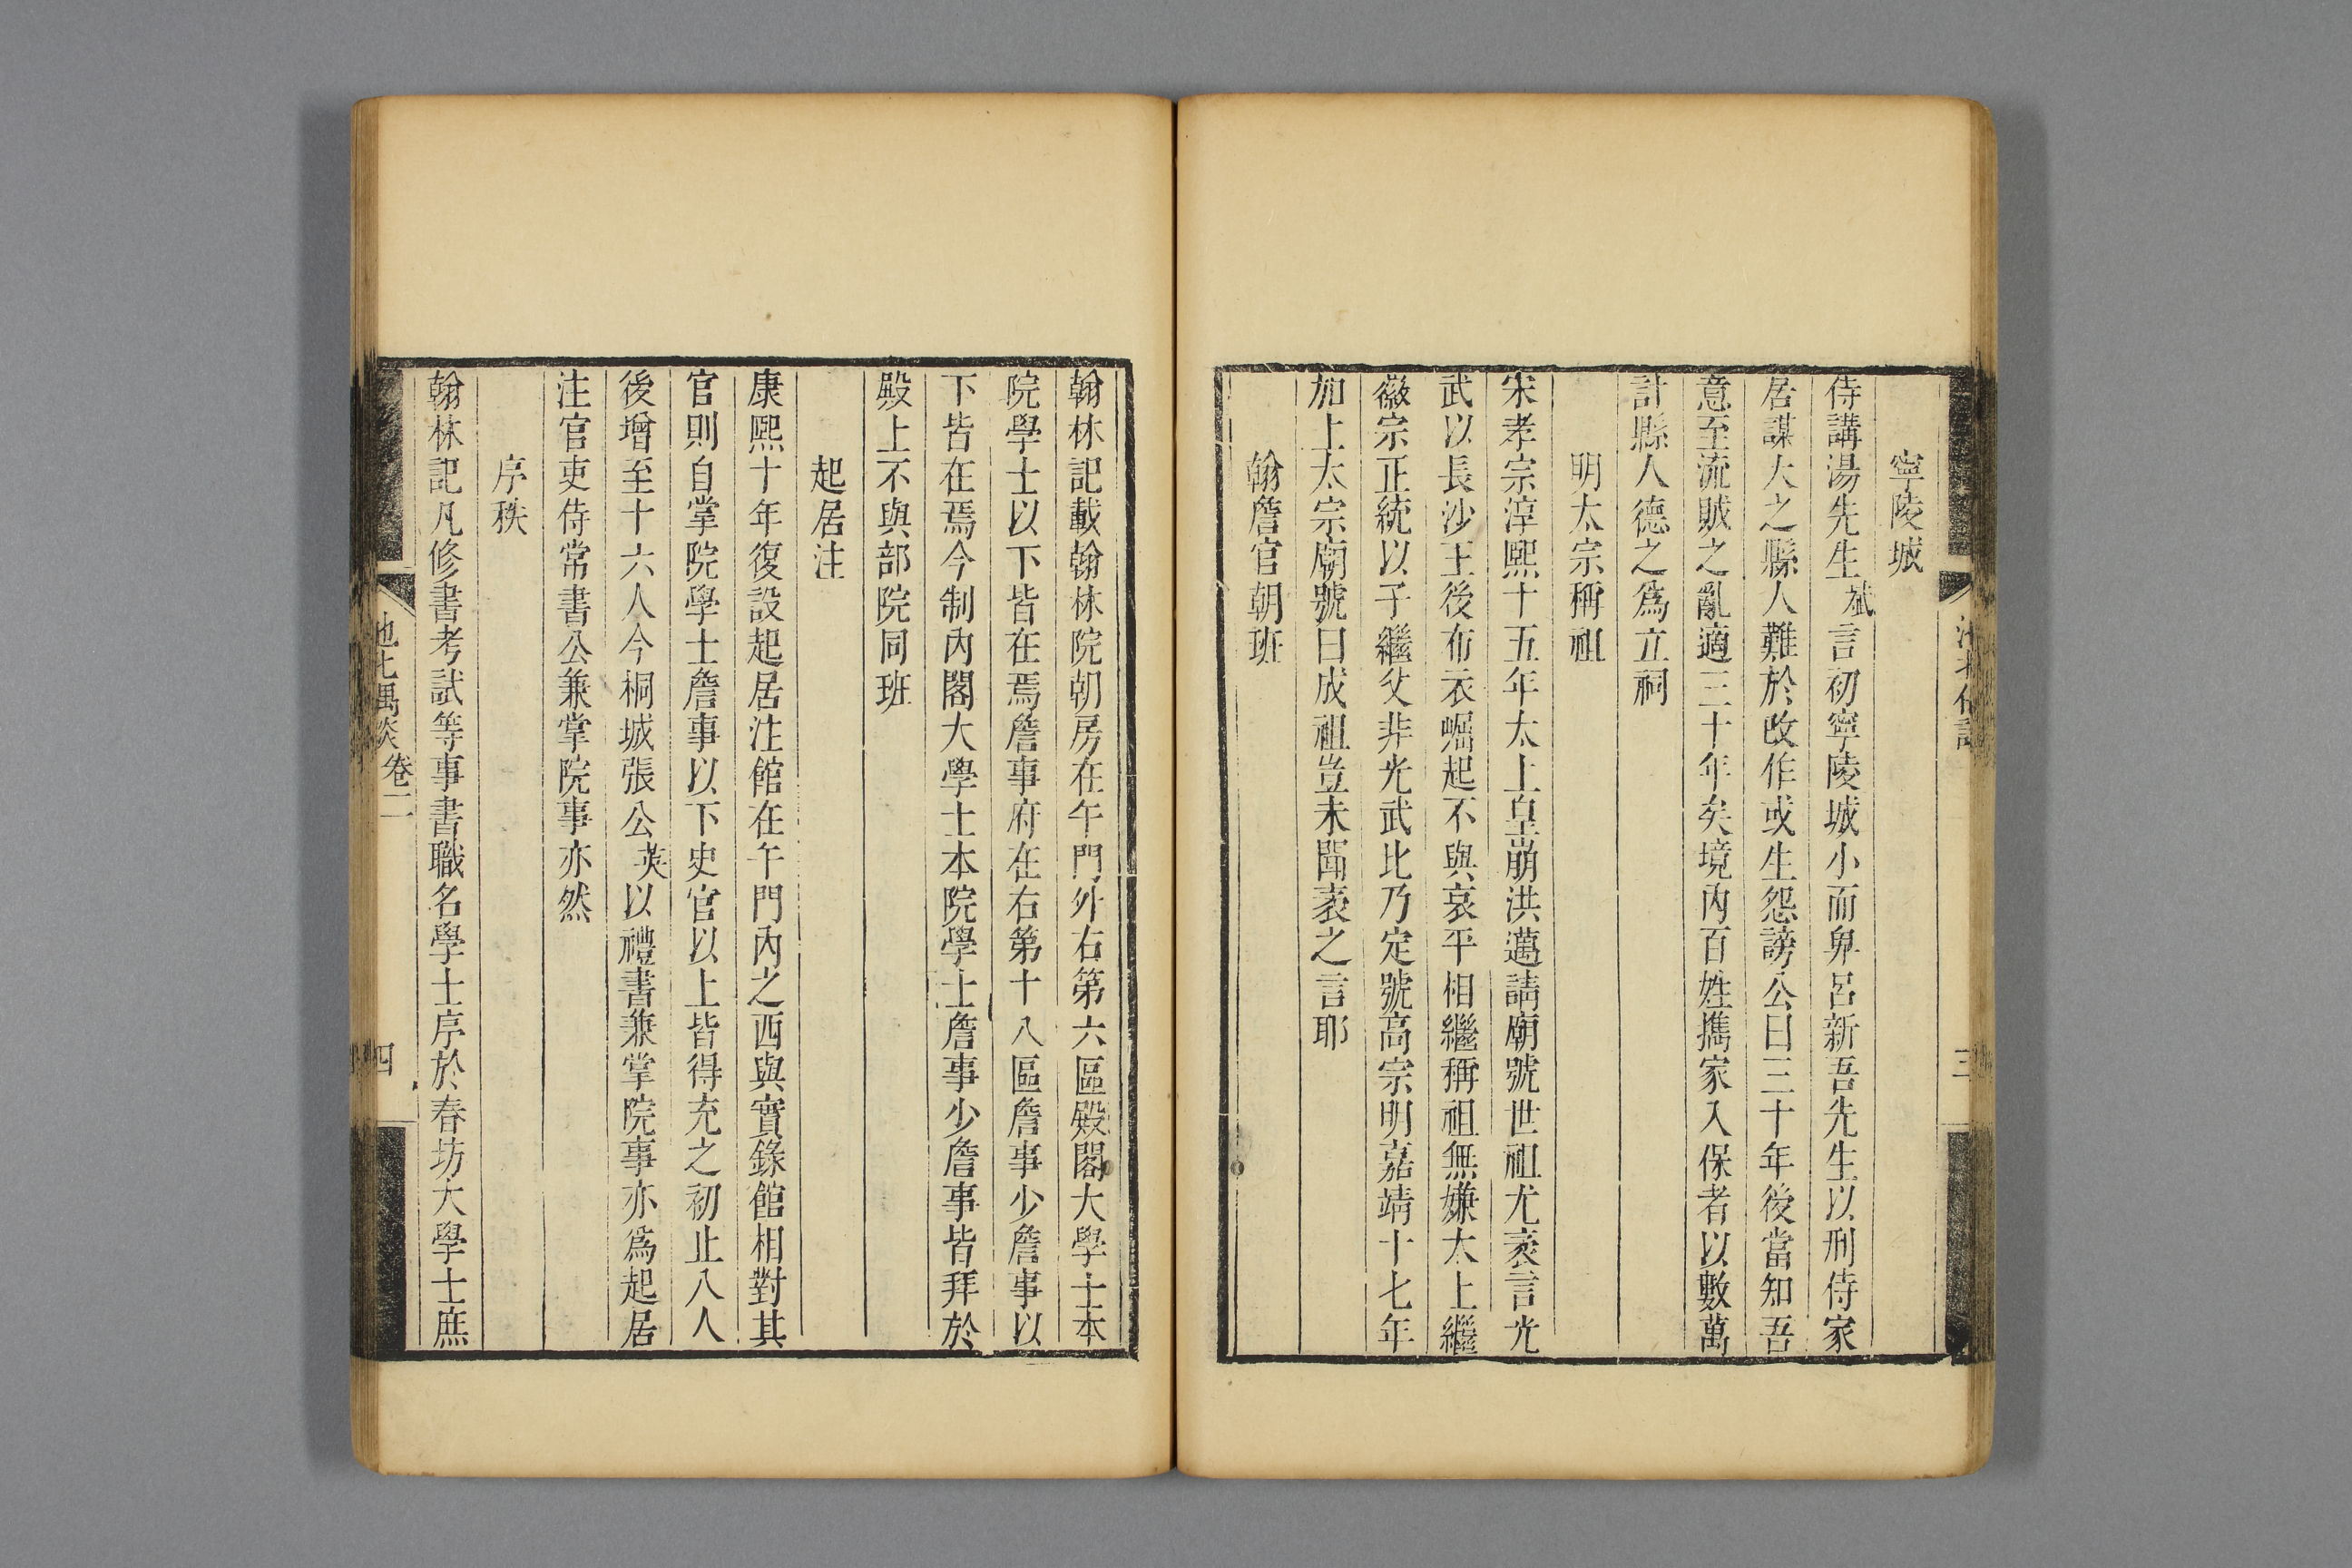 寧陵城
侍講湯先生斌言初寧陵城小而卑呂新吾先生以刑侍家
居謀大之縣人難於改作或生怨謗公曰三十年後當知吾
意至流賊之亂適三十年矣境內百姓攜家入保者以數萬
計縣人德之為立祠
明太宗稱祖
宋孝宗淳熙十五年太上皇崩洪邁請廟號世祖尤袤言光
武以長沙王後布衣崛起不與哀平相繼稱祖無嫌太上繼
徽宗正統以子繼父非光武比乃定號高宗明嘉靖十七年
加上太宗廟號曰成祖豈未聞袤之言耶
翰詹官朝班
翰林記載翰林院朝房在午門外右第六區殿閣大學士本
院學士以下皆在焉詹事府在右第十八區詹事少詹事以
下皆在焉今制內閣大學士本院學士詹事少詹事皆拜於
殿上不與部院同班
起居注
康熙十年復設起居注館在午門內之西與實錄館相對其
官則自掌院學士詹事以下史官以上皆得充之初止八人
後增至十六人今桐城張公英以禮書兼掌院事亦為起居
注官吏侍常書公兼掌院事亦然
序秩
翰林記凡修書考試等事書職名學士序於春坊大學士庶
池北偶談 卷二 四